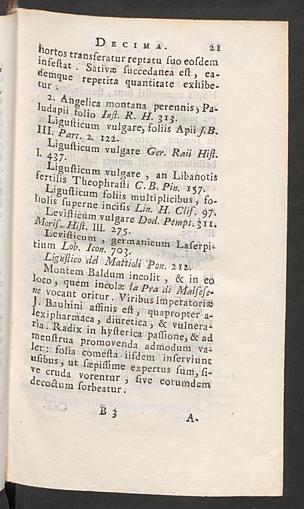 DECIMA. 21
hortos transferatur reptatu suo eosdem
infestat. Sativæ succedanea est, ea-
demque repetita quantitate exhibe-
tur.
2. Angelica montana perennis, Pa-
ludapii folio Inst. R. H. 313.
Ligusticum vulgare, foliis Apii J. B.
III. Part. 2. 122.
Ligusticum vulgare Ger. Raii Hist.
I. 437.
Ligusticum vulgare, an Libanotis
fertilis Theophrasti C. B. Pin. 157.
Ligusticum foliis multiplicibus, fo-
liolis superne incisis Lin. H. Clif. 97.
Levisticum vulgare Dod. Pempt. 311.
Moris. Hist. III. 275.
Levisticum, germanicum Laserpi-
tium Lob. Icon. 703.
Ligustico del Mattioli Pon. 212.
Montem Baldum incolit, & in eo
loco, quem incolæ la Pra di Malsese-
ne vocant oritur. Viribus Imperatoriæ
J. Bauhini affinis est, quapropter a-
lexipharmaca, diuretica, & vulnera-
ria. Radix in hysterica passione, & ad
menstrua promovenda admodum va-
let: folia comesta iisdem inserviunt
usibus, ut sæpissime expertus sum, si-
ve cruda vorentur, sive eorumdem
decoctum sorbeatur.
B 3 A-